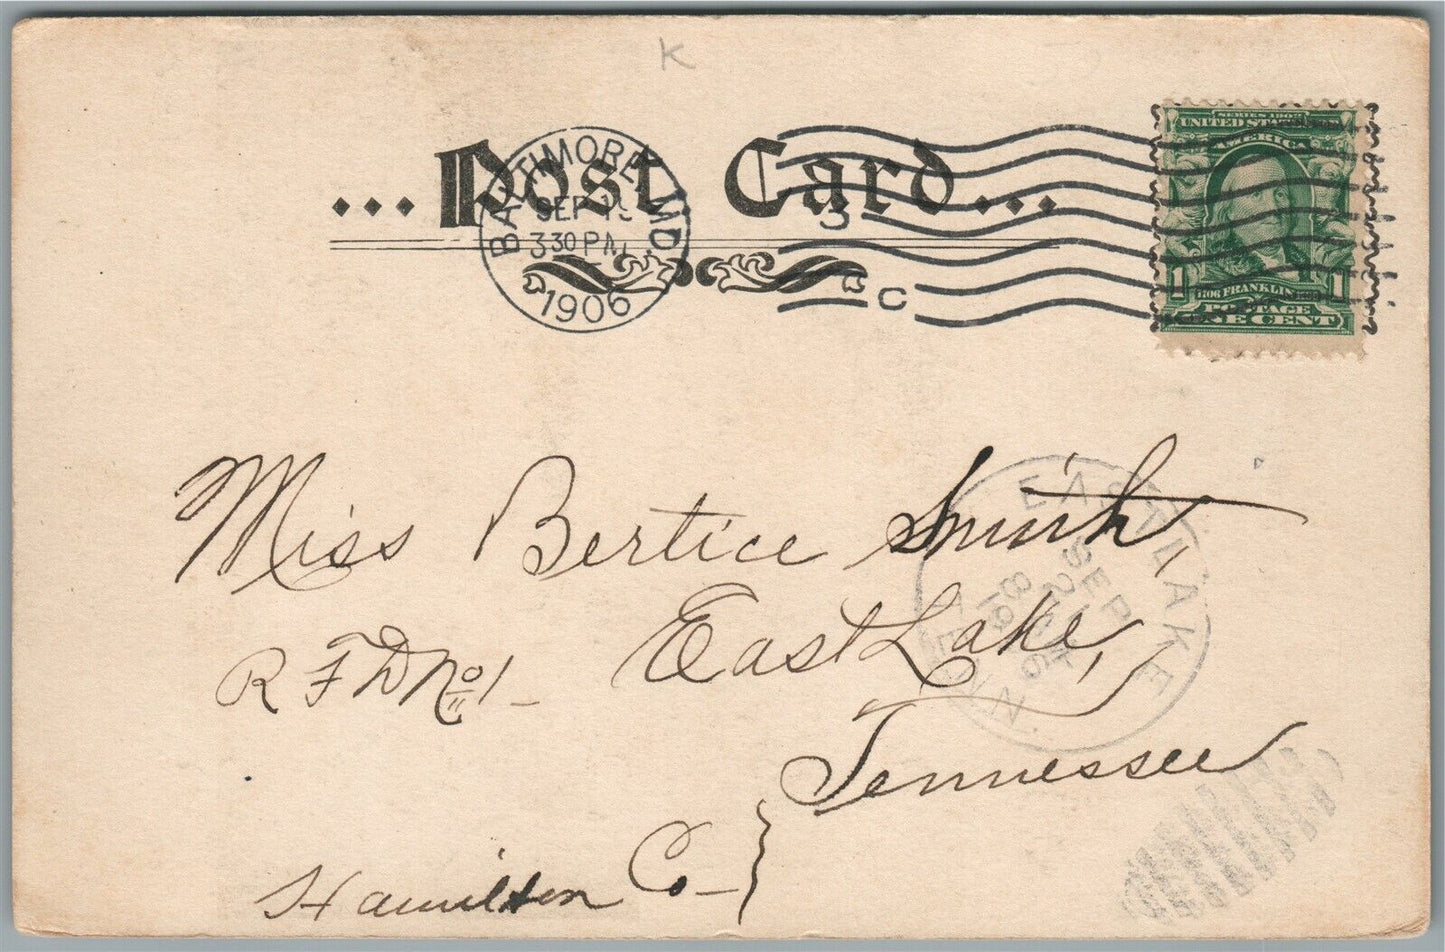 K
...Post Card...
BALTIMORE, MD.
SEP 19
3 30 PM
1906
3
C
SERIES 1902
UNITED STATES OF
AMERICA
1706 FRANKLIN
1 1
POSTAGE
ONE CENT
Miss Bertice Smith,
East Lake,
R F D No 1-
Tennessee
Hamilton Co- }
EAST LAKE
TENN
SEP